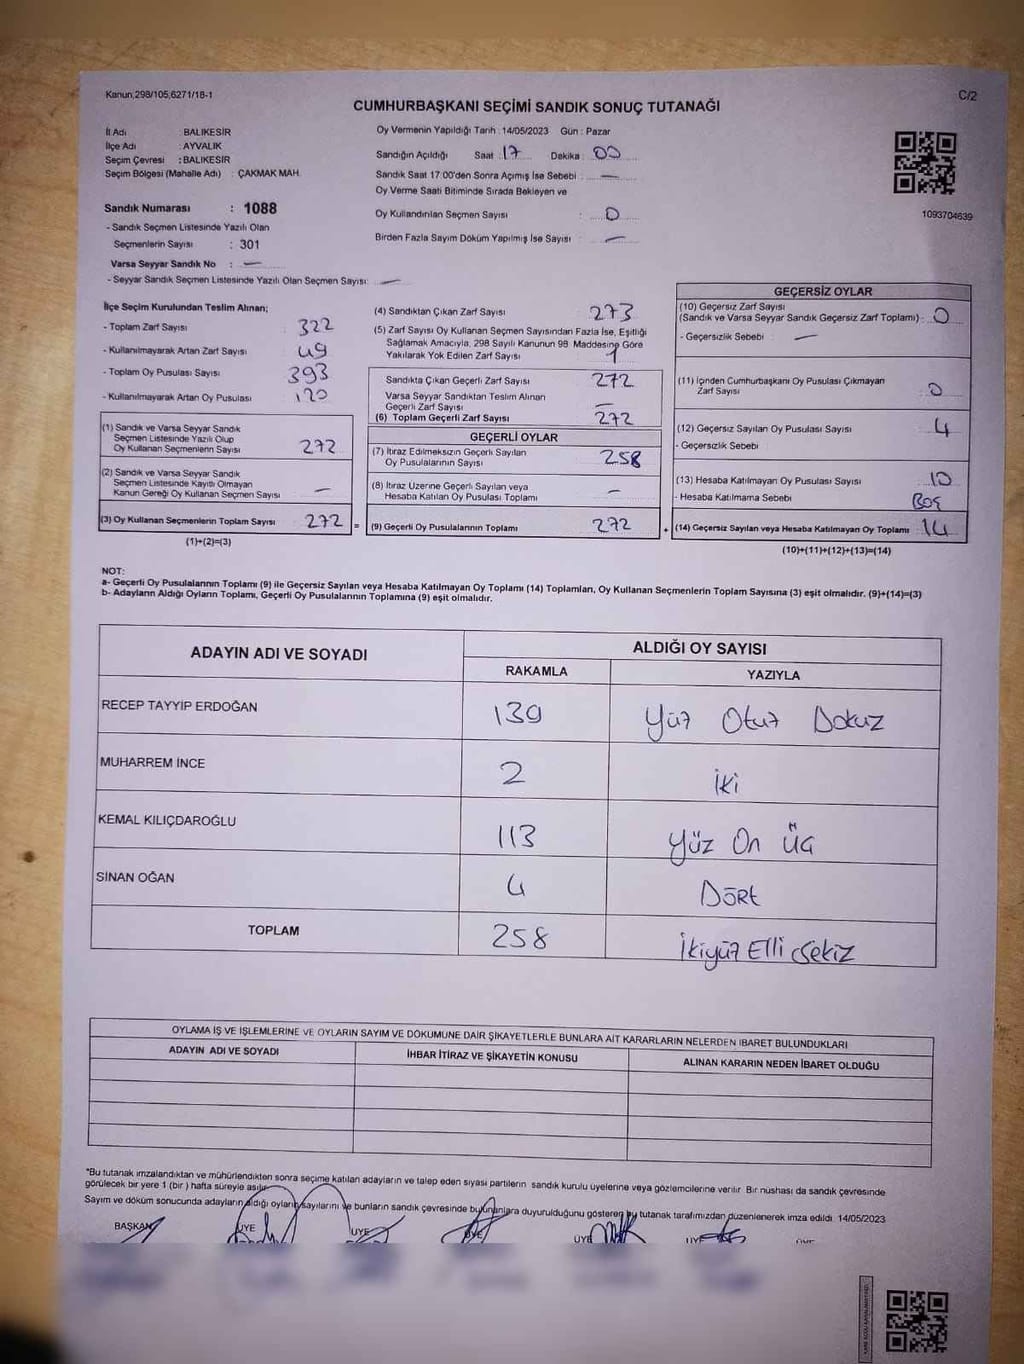 Kanun,298/105,6271/18-1
C/2
CUMHURBAŞKANI SEÇİMİ SANDIK SONUÇ TUTANAĞI
İl Adı : BALIKESİR
İlçe Adı : AYVALIK
Seçim Çevresi : BALIKESİR
Seçim Bölgesi (Mahalle Adı) : ÇAKMAK MAH.
Sandık Numarası : 1088
- Sandık Seçmen Listesinde Yazılı Olan
Seçmenlerin Sayısı : 301
Varsa Seyyar Sandık No : —
- Seyyar Sandık Seçmen Listesinde Yazılı Olan Seçmen Sayısı: —
Oy Vermenin Yapıldığı Tarih : 14/05/2023 Gün : Pazar
Sandığın Açıldığı Saat : 17 Dakika : 00
Sandık Saat 17:00'den Sonra Açılmış İse Sebebi : —
Oy Verme Saati Bitiminde Sırada Bekleyen ve
Oy Kullandırılan Seçmen Sayısı : 0
Birden Fazla Sayım Döküm Yapılmış İse Sayısı : —
1093704639
İlçe Seçim Kurulundan Teslim Alınan;
- Toplam Zarf Sayısı 322
- Kullanılmayarak Artan Zarf Sayısı 49
- Toplam Oy Pusulası Sayısı 393
- Kullanılmayarak Artan Oy Pusulası 120
(1) Sandık ve Varsa Seyyar Sandık
Seçmen Listesinde Yazılı Olup
Oy Kullanan Seçmenlerin Sayısı 272
(2) Sandık ve Varsa Seyyar Sandık
Seçmen Listesinde Kayıtlı Olmayan
Kanun Gereği Oy Kullanan Seçmen Sayısı —
(3) Oy Kullanan Seçmenlerin Toplam Sayısı 272 =
(1)+(2)=(3)
(4) Sandıktan Çıkan Zarf Sayısı 273
(5) Zarf Sayısı Oy Kullanan Seçmen Sayısından Fazla İse, Eşitliği
Sağlamak Amacıyla, 298 Sayılı Kanunun 98. Maddesine Göre
Yakılarak Yok Edilen Zarf Sayısı 1
Sandıkta Çıkan Geçerli Zarf Sayısı 272
Varsa Seyyar Sandıktan Teslim Alınan
Geçerli Zarf Sayısı —
(6) Toplam Geçerli Zarf Sayısı 272
GEÇERLİ OYLAR
(7) İtiraz Edilmeksizin Geçerli Sayılan
Oy Pusulalarının Sayısı 258
(8) İtiraz Üzerine Geçerli Sayılan veya
Hesaba Katılan Oy Pusulası Toplamı —
(9) Geçerli Oy Pusulalarının Toplamı 272 +
GEÇERSİZ OYLAR
(10) Geçersiz Zarf Sayısı
(Sandık ve Varsa Seyyar Sandık Geçersiz Zarf Toplamı) : 0
- Geçersizlik Sebebi : —
(11) İçinden Cumhurbaşkanı Oy Pusulası Çıkmayan
Zarf Sayısı 0
(12) Geçersiz Sayılan Oy Pusulası Sayısı 4
- Geçersizlik Sebebi
(13) Hesaba Katılmayan Oy Pusulası Sayısı 10
- Hesaba Katılmama Sebebi Boş
(14) Geçersiz Sayılan veya Hesaba Katılmayan Oy Toplamı 14
(10)+(11)+(12)+(13)=(14)
NOT:
a- Geçerli Oy Pusulalarının Toplamı (9) ile Geçersiz Sayılan veya Hesaba Katılmayan Oy Toplamı (14) Toplamları, Oy Kullanan Seçmenlerin Toplam Sayısına (3) eşit olmalıdır. (9)+(14)=(3)
b- Adayların Aldığı Oyların Toplamı, Geçerli Oy Pusulalarının Toplamına (9) eşit olmalıdır.
ADAYIN ADI VE SOYADI ALDIĞI OY SAYISI
RAKAMLA YAZIYLA
RECEP TAYYİP ERDOĞAN 139 Yüz Otuz Dokuz
MUHARREM İNCE 2 İki
KEMAL KILIÇDAROĞLU 113 Yüz On Üç
SİNAN OĞAN 4 Dört
TOPLAM 258 İkiyüz Elli Sekiz
OYLAMA İŞ VE İŞLEMLERİNE VE OYLARIN SAYIM VE DÖKÜMÜNE DAİR ŞİKAYETLERLE BUNLARA AİT KARARLARIN NELERDEN İBARET BULUNDUKLARI
ADAYIN ADI VE SOYADI İHBAR İTİRAZ VE ŞİKAYETİN KONUSU ALINAN KARARIN NEDEN İBARET OLDUĞU
*Bu tutanak imzalandıktan ve mühürlendikten sonra seçime katılan adayların ve talep eden siyasi partilerin sandık kurulu üyelerine veya gözlemcilerine verilir. Bir nüshası da sandık çevresinde
görülecek bir yere 1 (bir) hafta süreyle asılır.
Sayım ve döküm sonucunda adayların aldığı oyların sayılarını ve bunların sandık çevresinde bulunanlara duyurulduğunu gösteren bu tutanak tarafımızdan düzenlenerek imza edildi. 14/05/2023
BAŞKAN ÜYE ÜYE ÜYE ÜYE ÜYE ÜYE